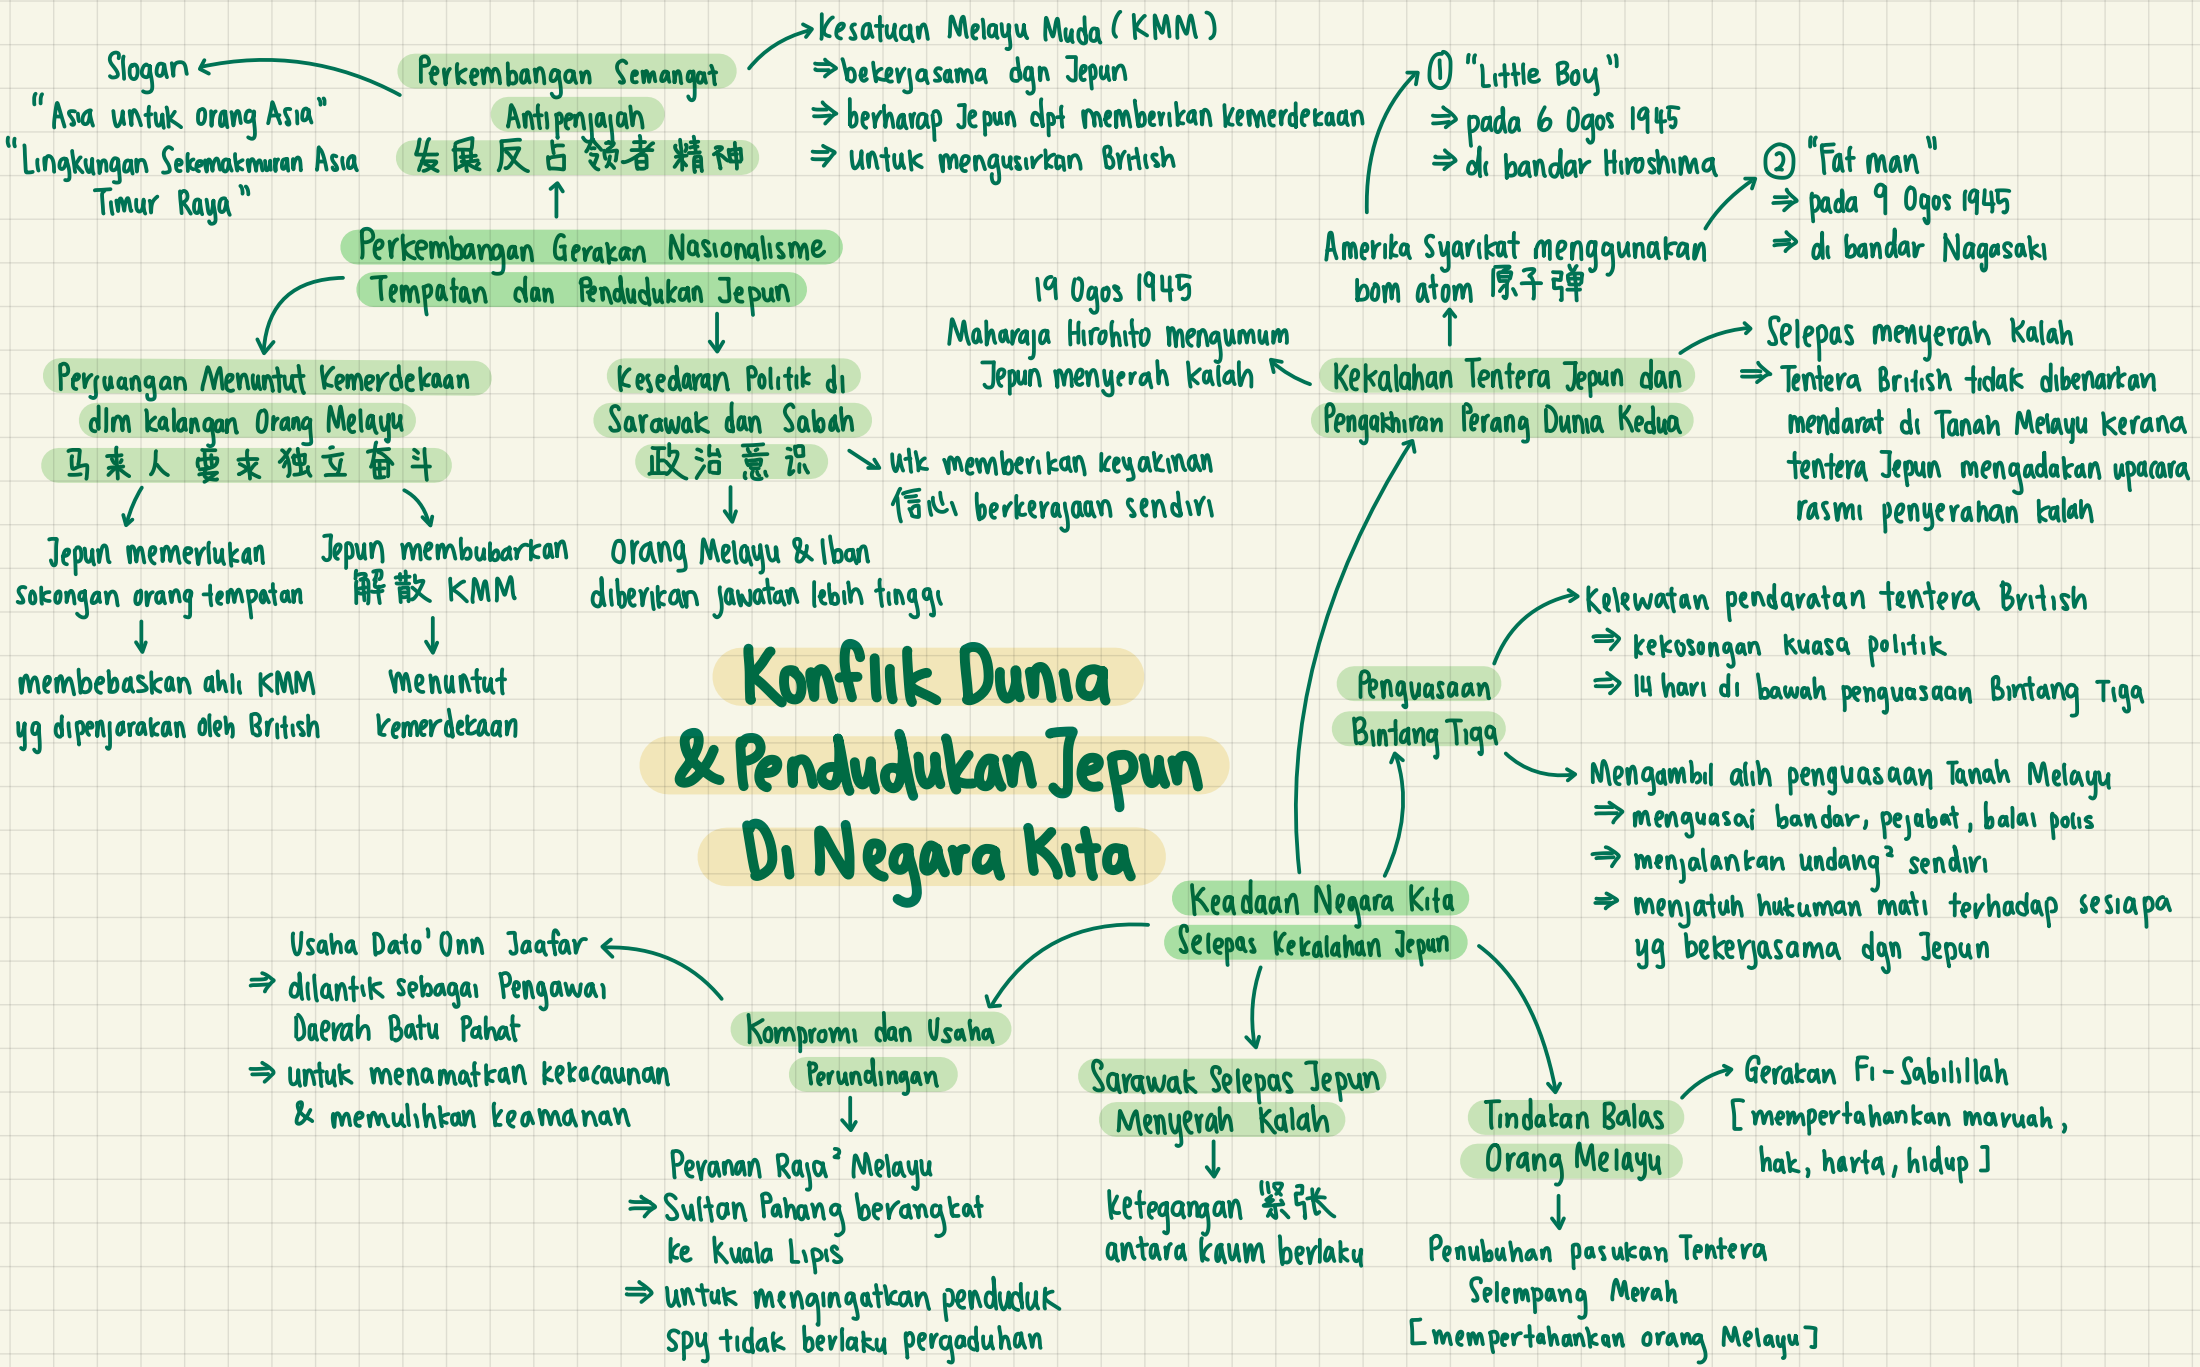 Slogan
"Asia untuk orang Asia"
"Lingkungan Sekemakmuran Asia
Timur Raya"
Perkembangan Semangat
Antipenjajah
发展反占领者精神
Kesatuan Melayu Muda (KMM)
⇒ bekerjasama dgn Jepun
⇒ berharap Jepun dpt memberikan kemerdekaan
⇒ untuk mengusirkan British
Perkembangan Gerakan Nasionalisme
Tempatan dan Pendudukan Jepun
Perjuangan Menuntut Kemerdekaan
dlm kalangan Orang Melayu
马来人要求独立奋斗
Jepun memerlukan
sokongan orang tempatan
membebaskan ahli KMM
yg dipenjarakan oleh British
Jepun membubarkan
解散 KMM
menuntut
kemerdekaan
Kesedaran Politik di
Sarawak dan Sabah
政治意识
utk memberikan keyakinan
信心 berkerajaan sendiri
Orang Melayu & Iban
diberikan jawatan lebih tinggi
① "Little Boy"
⇒ pada 6 Ogos 1945
⇒ di bandar Hiroshima
② "Fat man"
⇒ pada 9 Ogos 1945
⇒ di bandar Nagasaki
Amerika Syarikat menggunakan
bom atom 原子弹
19 Ogos 1945
Maharaja Hirohito mengumum
Jepun menyerah kalah
Kekalahan Tentera Jepun dan
Pengakhiran Perang Dunia Kedua
Selepas menyerah kalah
⇒ Tentera British tidak dibenarkan
mendarat di Tanah Melayu kerana
tentera Jepun mengadakan upacara
rasmi penyerahan kalah
Konflik Dunia
& Pendudukan Jepun
Di Negara Kita
Penguasaan
Bintang Tiga
Kelewatan pendaratan tentera British
⇒ kekosongan kuasa politik
⇒ 14 hari di bawah penguasaan Bintang Tiga
Mengambil alih penguasaan Tanah Melayu
⇒ menguasai bandar, pejabat, balai polis
⇒ menjalankan undang² sendiri
⇒ menjatuh hukuman mati terhadap sesiapa
yg bekerjasama dgn Jepun
Keadaan Negara Kita
Selepas Kekalahan Jepun
Usaha Dato' Onn Jaafar
⇒ dilantik sebagai Pengawai
Daerah Batu Pahat
⇒ untuk menamatkan kekacaunan
& memulihkan keamanan
Kompromi dan Usaha
Perundingan
Peranan Raja² Melayu
⇒ Sultan Pahang berangkat
ke Kuala Lipis
⇒ untuk mengingatkan penduduk
spy tidak berlaku pergaduhan
Sarawak Selepas Jepun
Menyerah Kalah
ketegangan 紧张
antara kaum berlaku
Tindakan Balas
Orang Melayu
Gerakan Fi-Sabilillah
[mempertahankan maruah,
hak, harta, hidup]
Penubuhan pasukan Tentera
Selempang Merah
[mempertahankan orang Melayu]